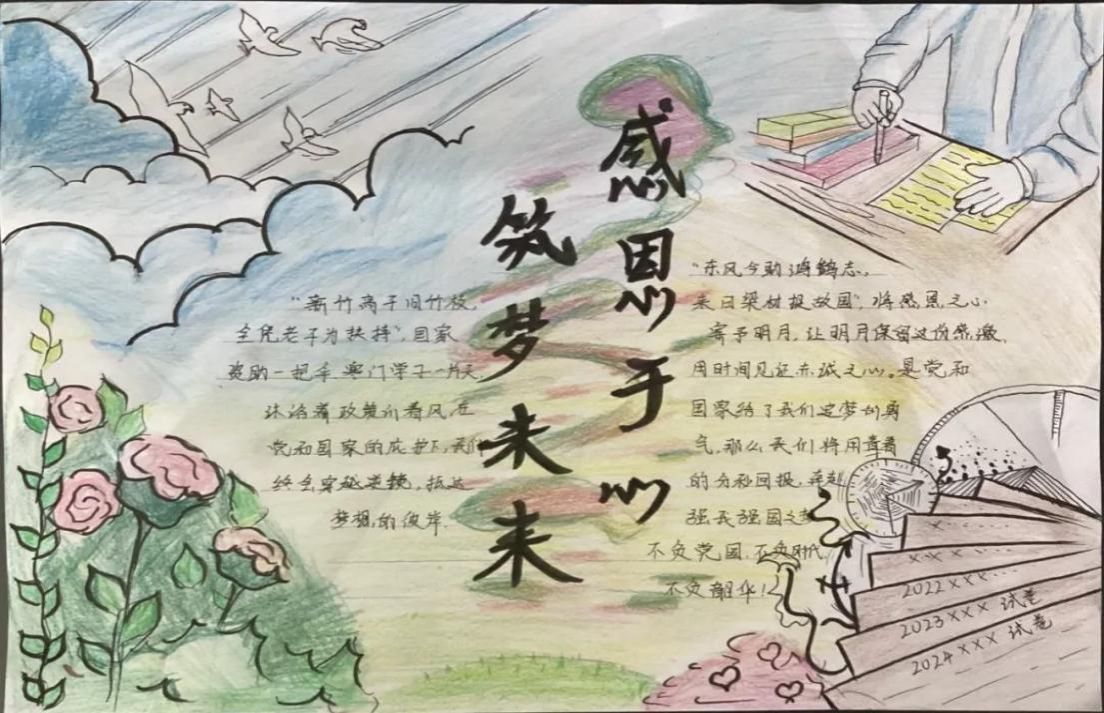 感恩于心
筑梦未来
"新竹高于旧竹枝,
全凭老干为扶持",国家
资助一把伞,寒门学子一片天
沐浴着政策的春风,在
党和国家的庇护下,我们
终会穿越逆境,抵达
梦想的彼岸.
"东风今助鸿鹄志,
来日梁材报故国",将感恩之心
寄予明月,让明月保留这份感激,
用时间见证赤诚之心。是党和
国家给了我们追梦的勇
气,那么我们将用青春
的分秒回报,奔赴
强我强国之梦
不负党国,不负时代,
不负韶华!
x ....
x x x ....
2022 x x x ....
2023 x x x 试卷
2024 x x x 试卷